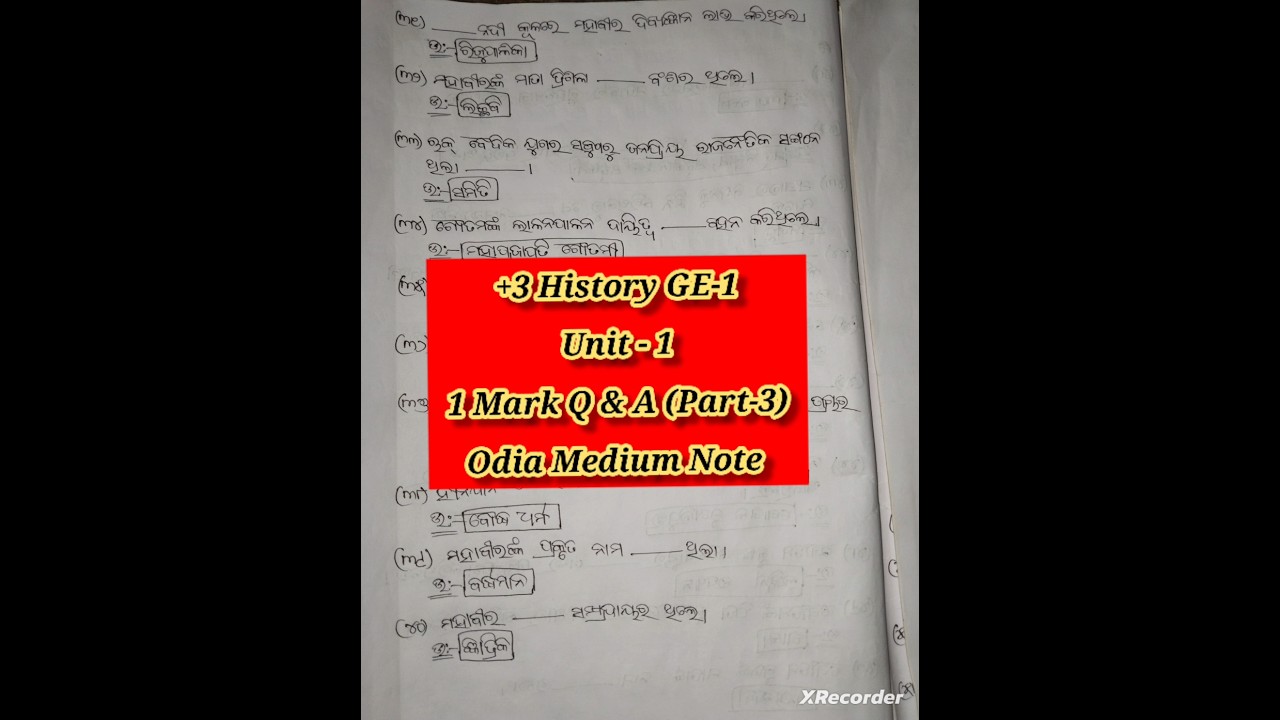 (୩୧) ____ ନଦୀ କୂଳରେ ମହାବୀର ଦିବ୍ୟଜ୍ଞାନ ଲାଭ କରିଥିଲେ।
ଉ:- ରିଜୁପାଳିକା
(୩୨) ମହାବୀରଙ୍କ ମାତା ତ୍ରିଶଳା ____ ବଂଶର ଥିଲେ।
ଉ:- ଲିଚ୍ଛବି
(୩୩) ଋକ୍ ବୈଦିକ ଯୁଗର ସବୁଠାରୁ ଜନପ୍ରିୟ ରାଜନୈତିକ ସଙ୍ଗଠନ
ଥିଲା ____ ।
ଉ:- ସମିତି
(୩୪) ଗୌତମଙ୍କ ଲାଳନପାଳନ ଦାୟିତ୍ୱ ____ ବହନ କରିଥିଲେ।
ଉ:- ମହାପ୍ରଜାପତି ଗୌତମୀ
(୩୫)
+3 History GE-1
Unit - 1
(୩୬)
1 Mark Q & A (Part-3)
(୩୭) ପ୍ରଚାର
Odia Medium Note
(୩୮) ହୀନଯାନ
ଉ:- ବୌଦ୍ଧ ଧର୍ମ
(୩୯) ମହାବୀରଙ୍କ ପ୍ରକୃତ ନାମ ____ ଥିଲା।
ଉ:- ବର୍ଦ୍ଧମାନ
(୪୦) ମହାବୀର ____ ସମ୍ପ୍ରଦାୟର ଥିଲେ।
ଉ:- ଜ୍ଞାତ୍ରିକ
XRecorder